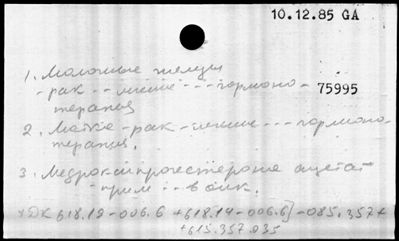 10.12.85 GA
1. Молочные железы
- рак -- лечение --- гормоно-
75995
терапия
2. Матка - рак - лечение --- гормоно-
терапия.
3. Медроксипрогестерона ацетат
- прим -- в онк.
УДК 618.19-006.6 + 618.14-006.6] -085.357+
+615.357.035